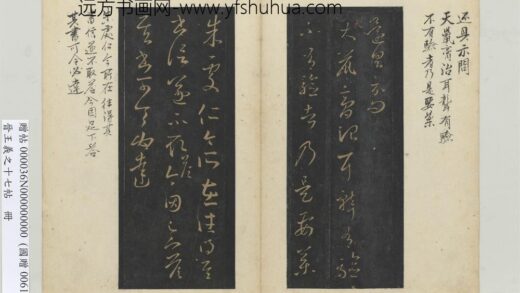 远方书画网-www.yfshuhua.com
还具示問
天鼠膏治耳聾有驗
不有驗者乃是要藥
還具示問
天鼠膏治耳聾有驗
不有驗者乃是要藥
朱處仁今所在往得其
書信遂不取答今因足下答
其書可令必達
朱處仁今所在往得其
書信遂不取答今因足下答
其書可令必達
贈帖 000036N000000000 (國贈 0061
晉王羲之十七帖 冊